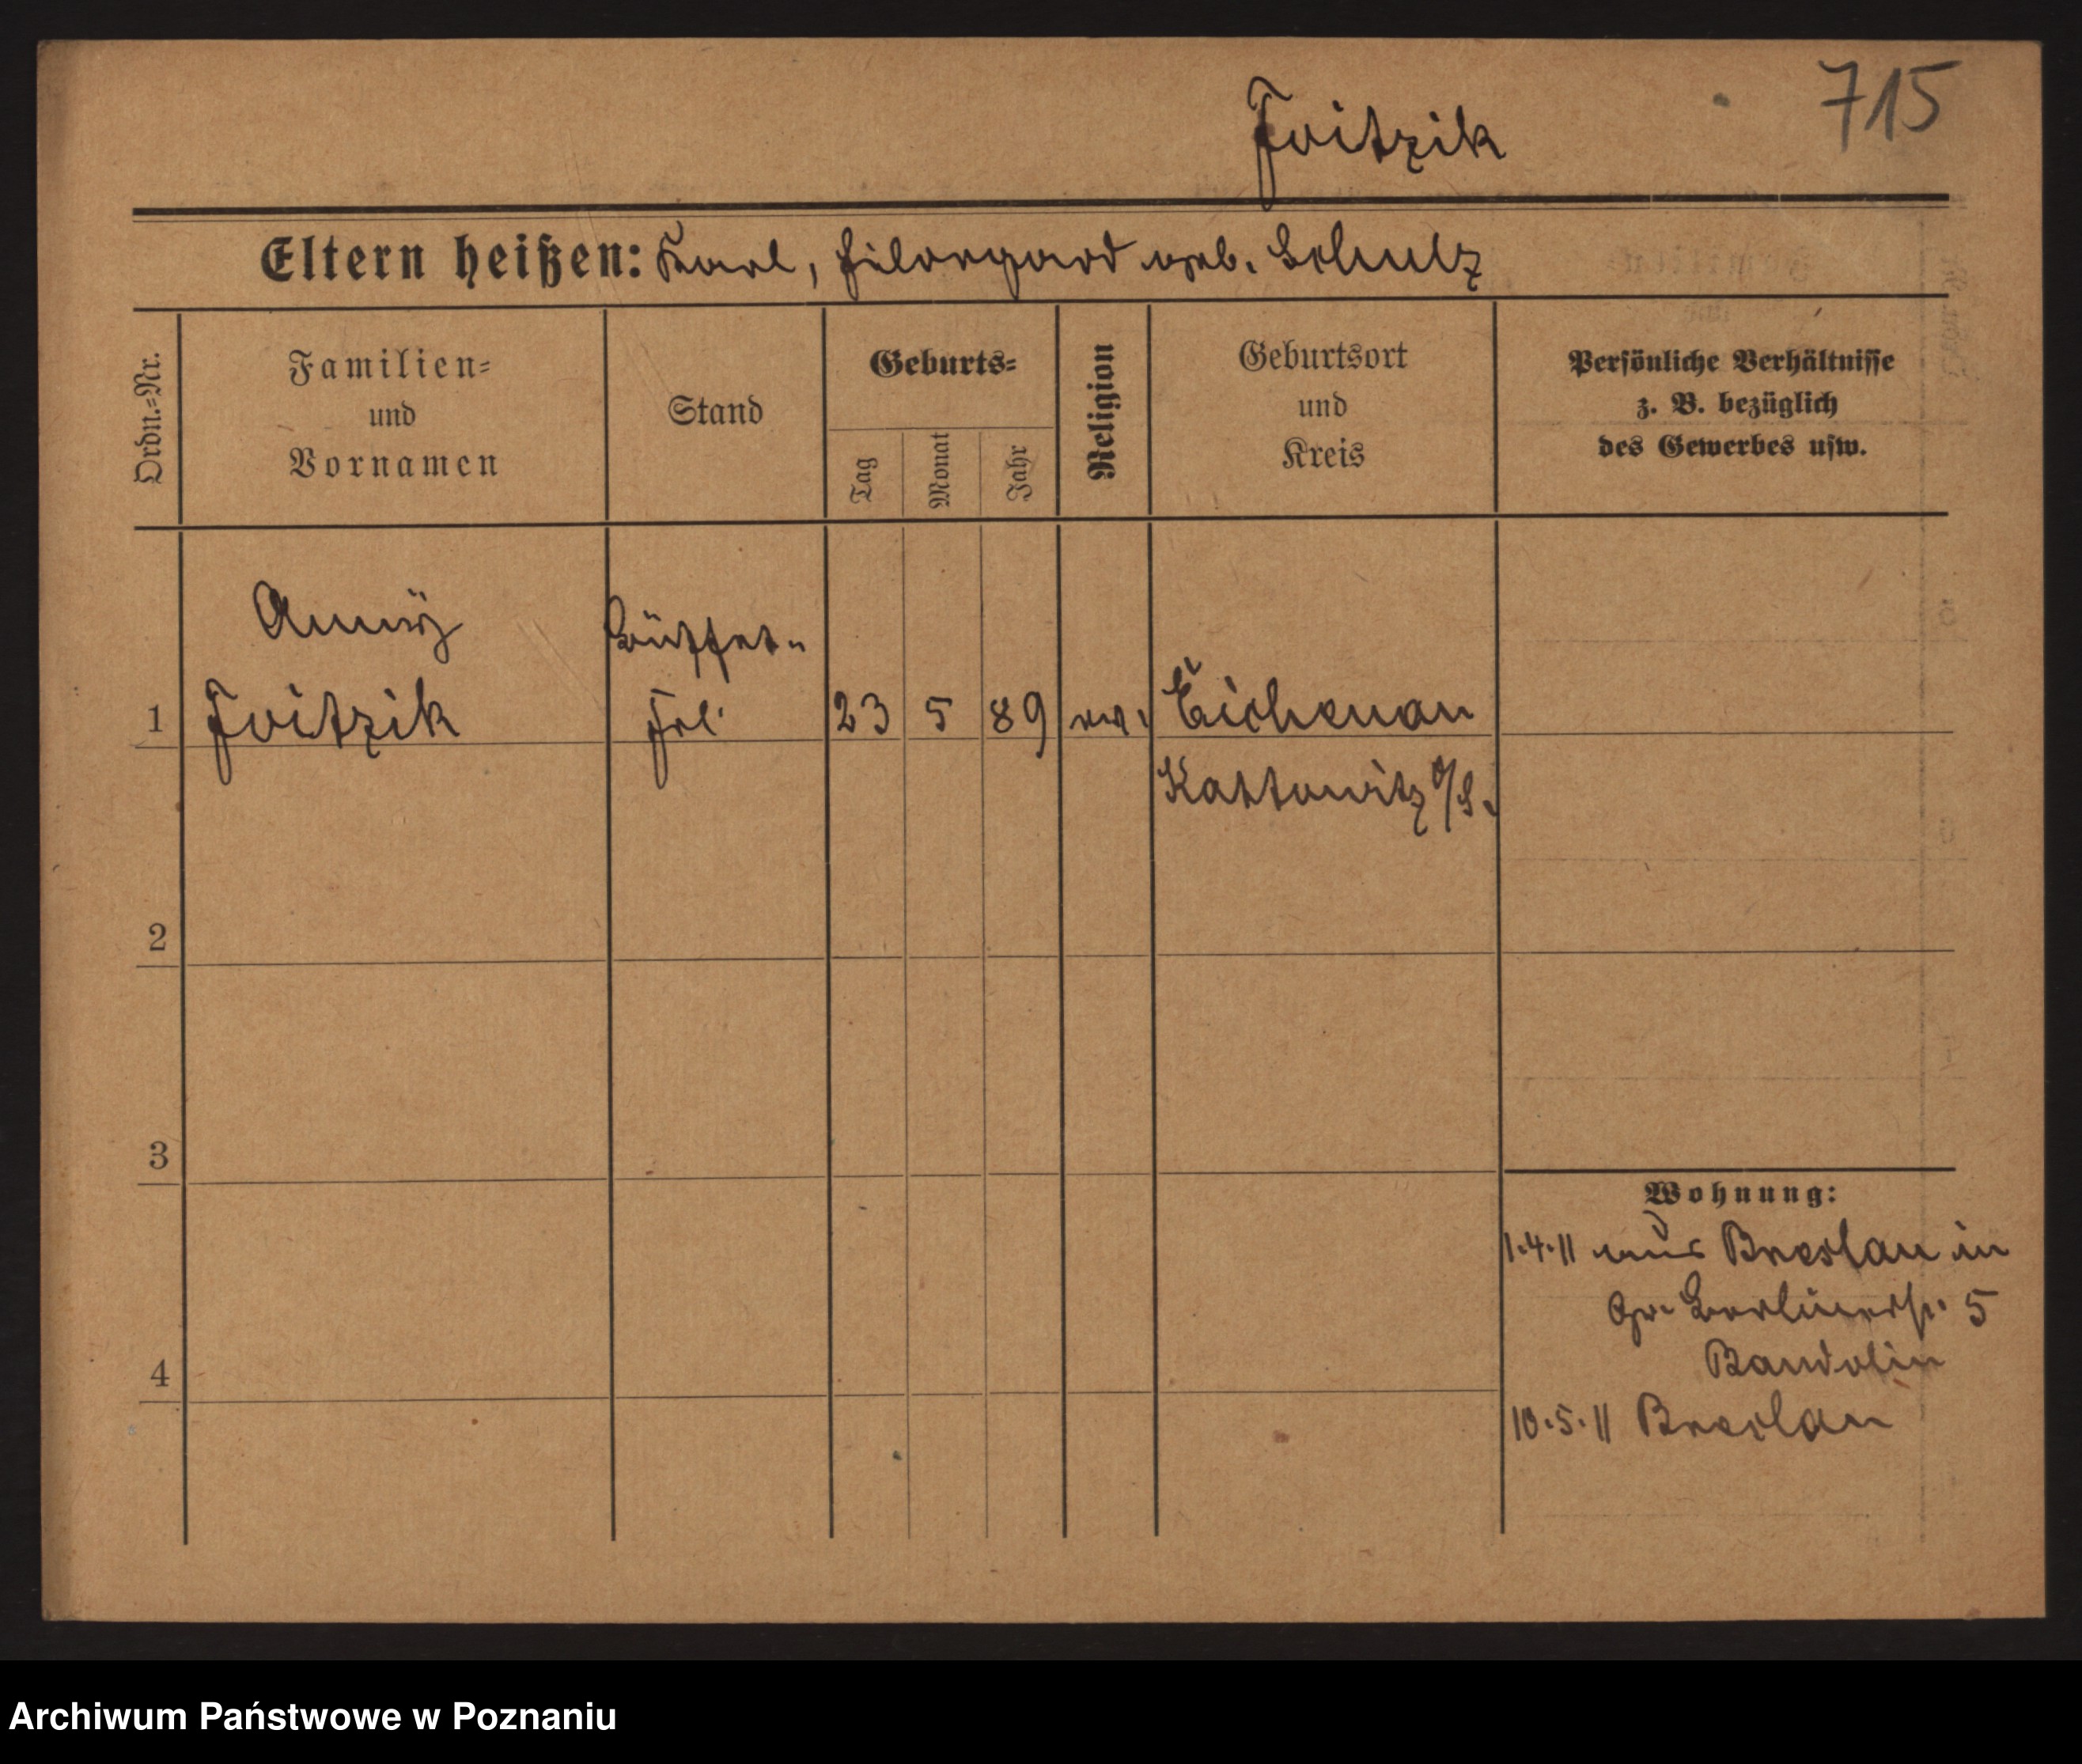 715
Foitzik
Eltern heißen: Karl, Hildegard geb. Schulz
Ordn.-Nr.
Familien-
und
Vornamen
Stand
Geburts-
Tag
Monat
Jahr
Religion
Geburtsort
und
Kreis
Persönliche Verhältnisse
z. B. bezüglich
des Gewerbes usw.
Büffet-
1 Foitzik Frl. 23 5 89 ev. Eichenau
Kattowitz O/S.
2
3
4
Wohnung:
1.4.11 aus Breslau in
Gr. Berlinerstr. 5
10.5.11 Breslau
Archiwum Państwowe w Poznaniu